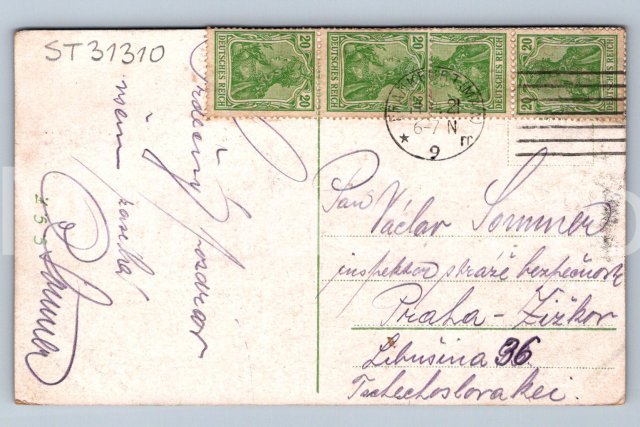 ST 31310
20 DEUTSCHES REICH 20
20 DEUTSCHES REICH 20
20 DEUTSCHES REICH
20 DEUTSCHES REICH
21
6-7 N
* 9 m
Srdečný pozdrav
všem
Sommer
Pan Václav Sommer
inspektor stráže bezpečnosti
Praha - Žižkov
Libušina 36
Tschechoslovakei.